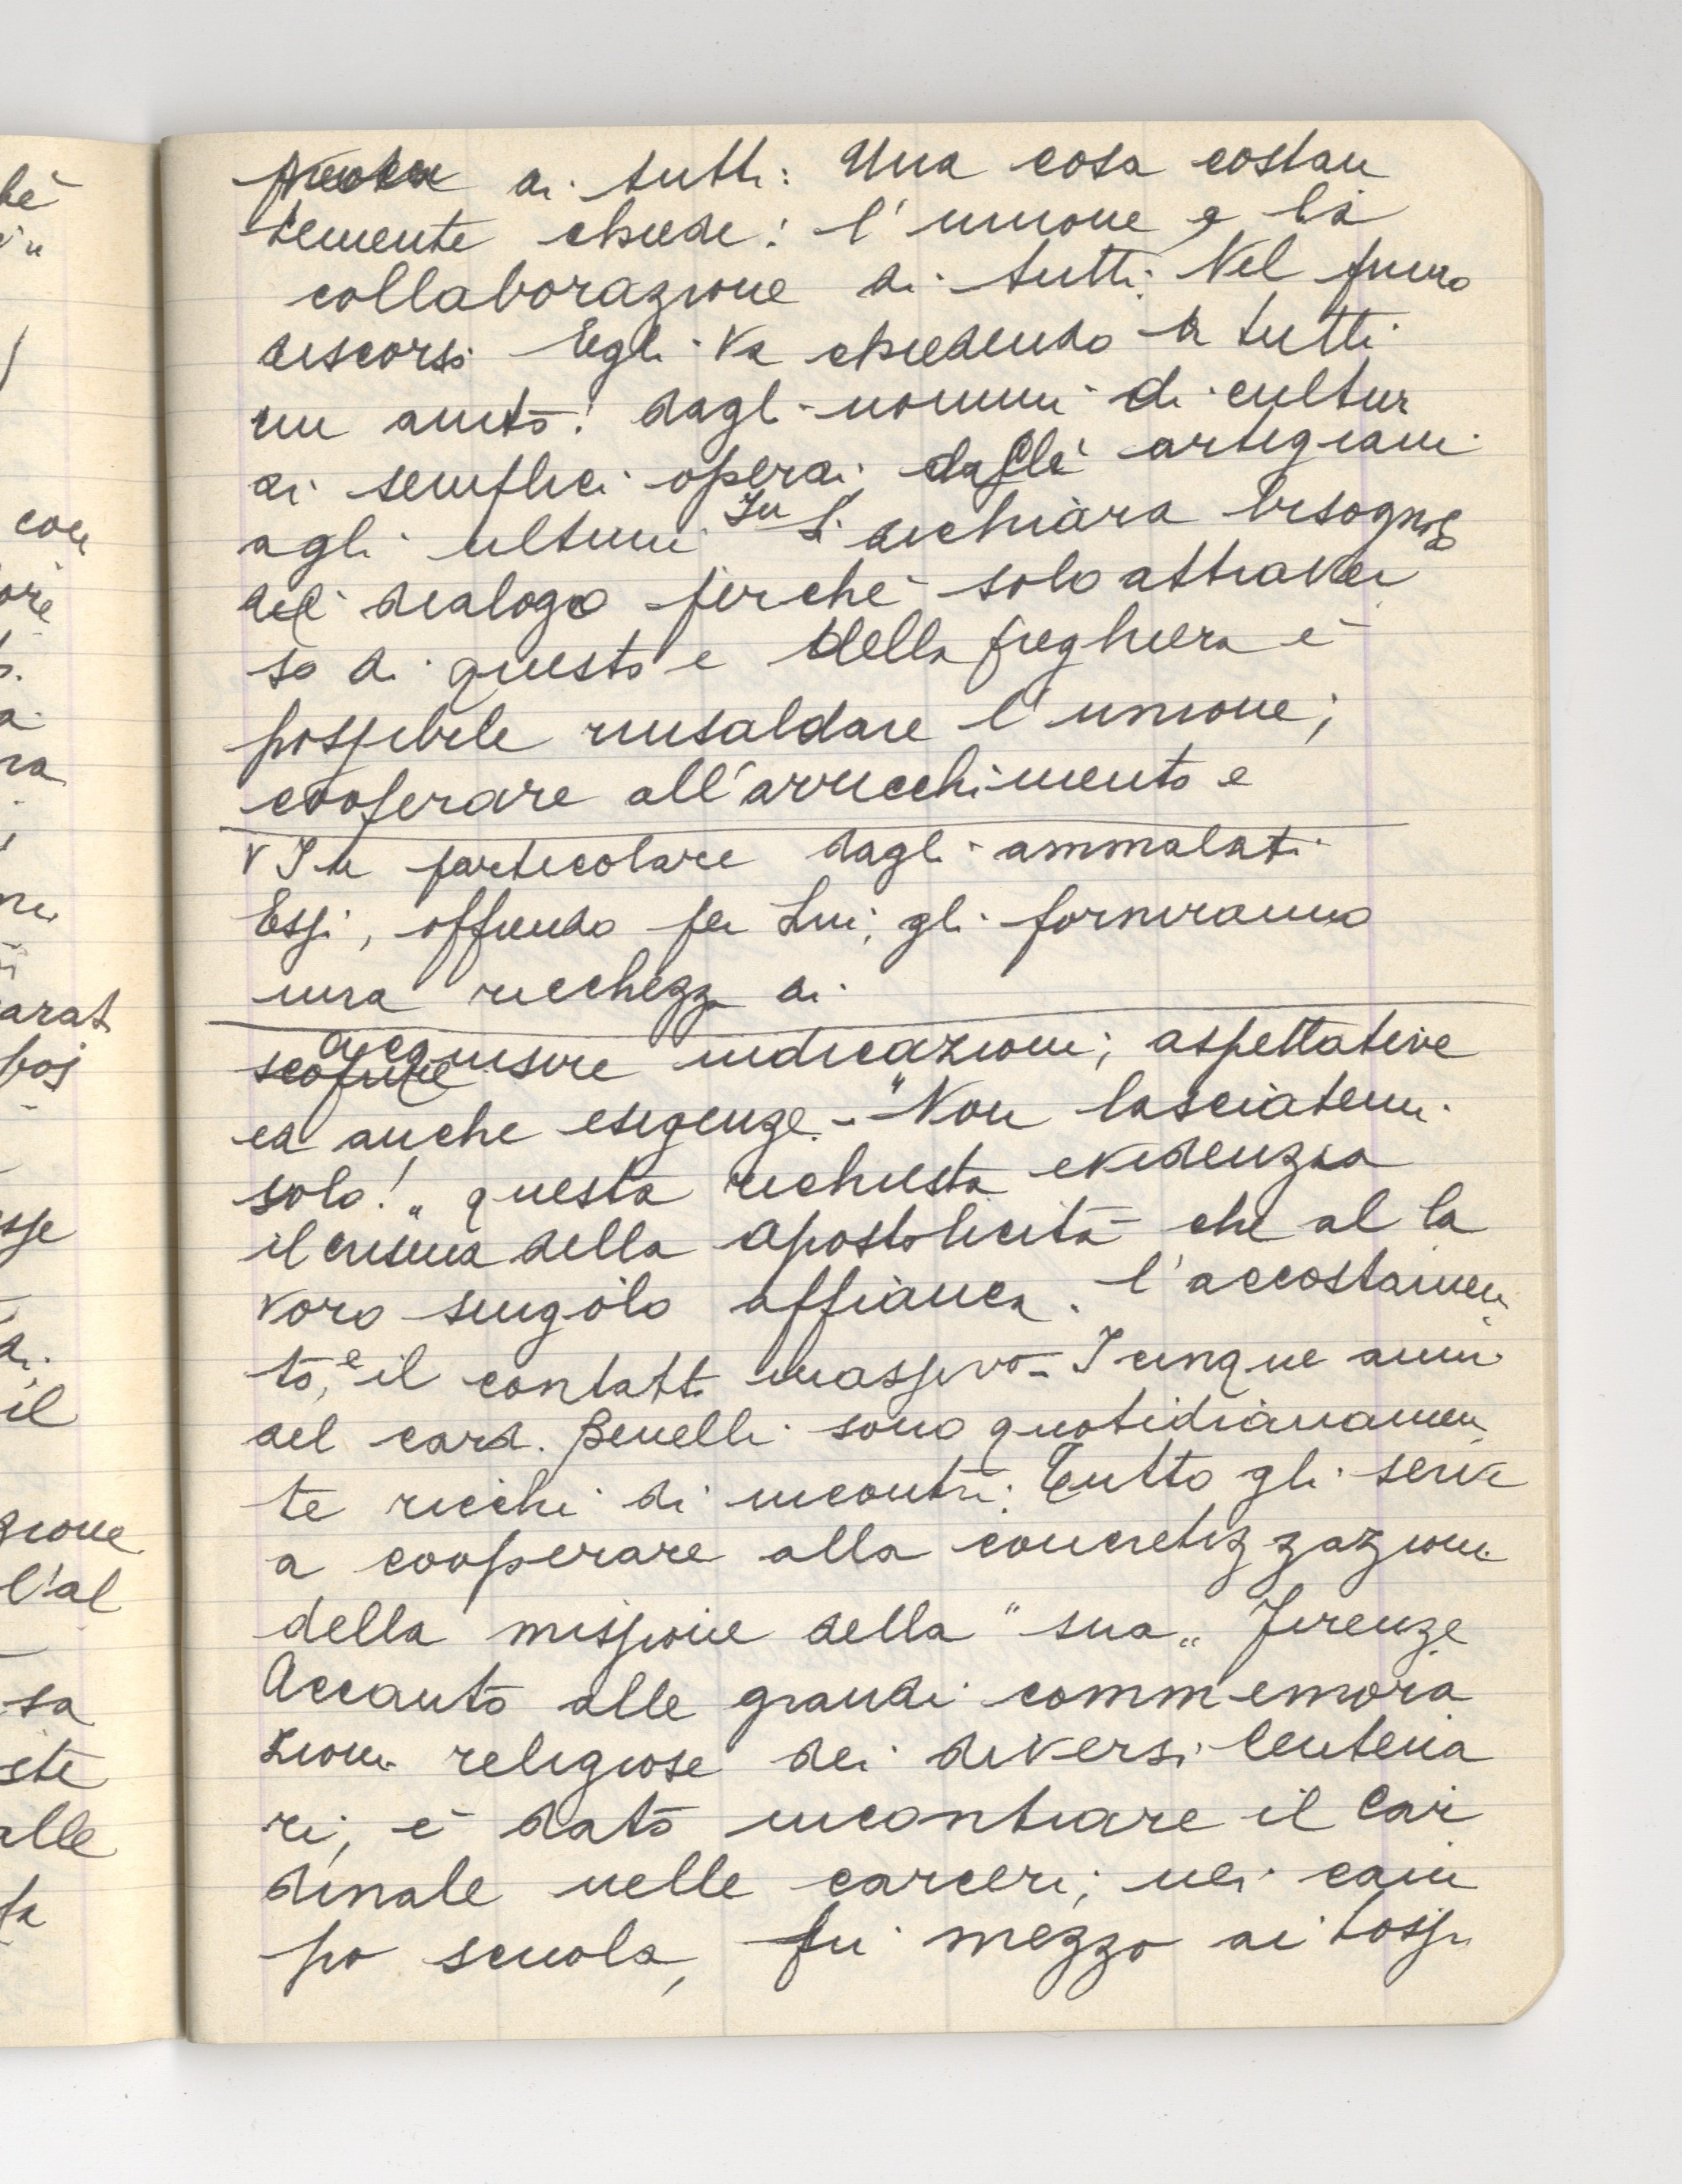 hè
coll
ore
ra
arat
pos
sse
di
il
zione
l'al
sa
ste
alle
ta
di tutti: Una cosa costan
temente chiede: l'unione e la
collaborazione di tutti. Nel primo
discorso Egli va chiedendo a tutti
un aiuto: dagli uomini di cultura
ai semplici operai, dagli artigiani
agli ultimi In S. dichiara bisognoso
del dialogo perchè solo attraver
so di questo e della preghiera è
possibile rinsaldare l'unione;
cooperare all'arricchimento e
V In particolare dagli ammalati.
Essi, offrendo per Lui, gli forniranno
una ricchezza di
acquisire indicazioni; aspettative
scoprire
ed anche esigenze. - "Non lasciatemi
solo!" questa richiesta evidenzia
il crisma della apostolicità che al la
voro singolo affianca l'accostamen
to, e il contatto massivo - I cinque anni
del card. Benelli sono quotidianamen
te ricchi di incontri. Tutto gli serve
a cooperare alla concretizzazione
della missione della "sua" Firenze
Accanto alle grandi commemora
zioni religiose dei diversi Centena
ri, è dato incontrare il Car
dinale nelle carceri; nei cam
po scuola, fin mezzo ai tossi